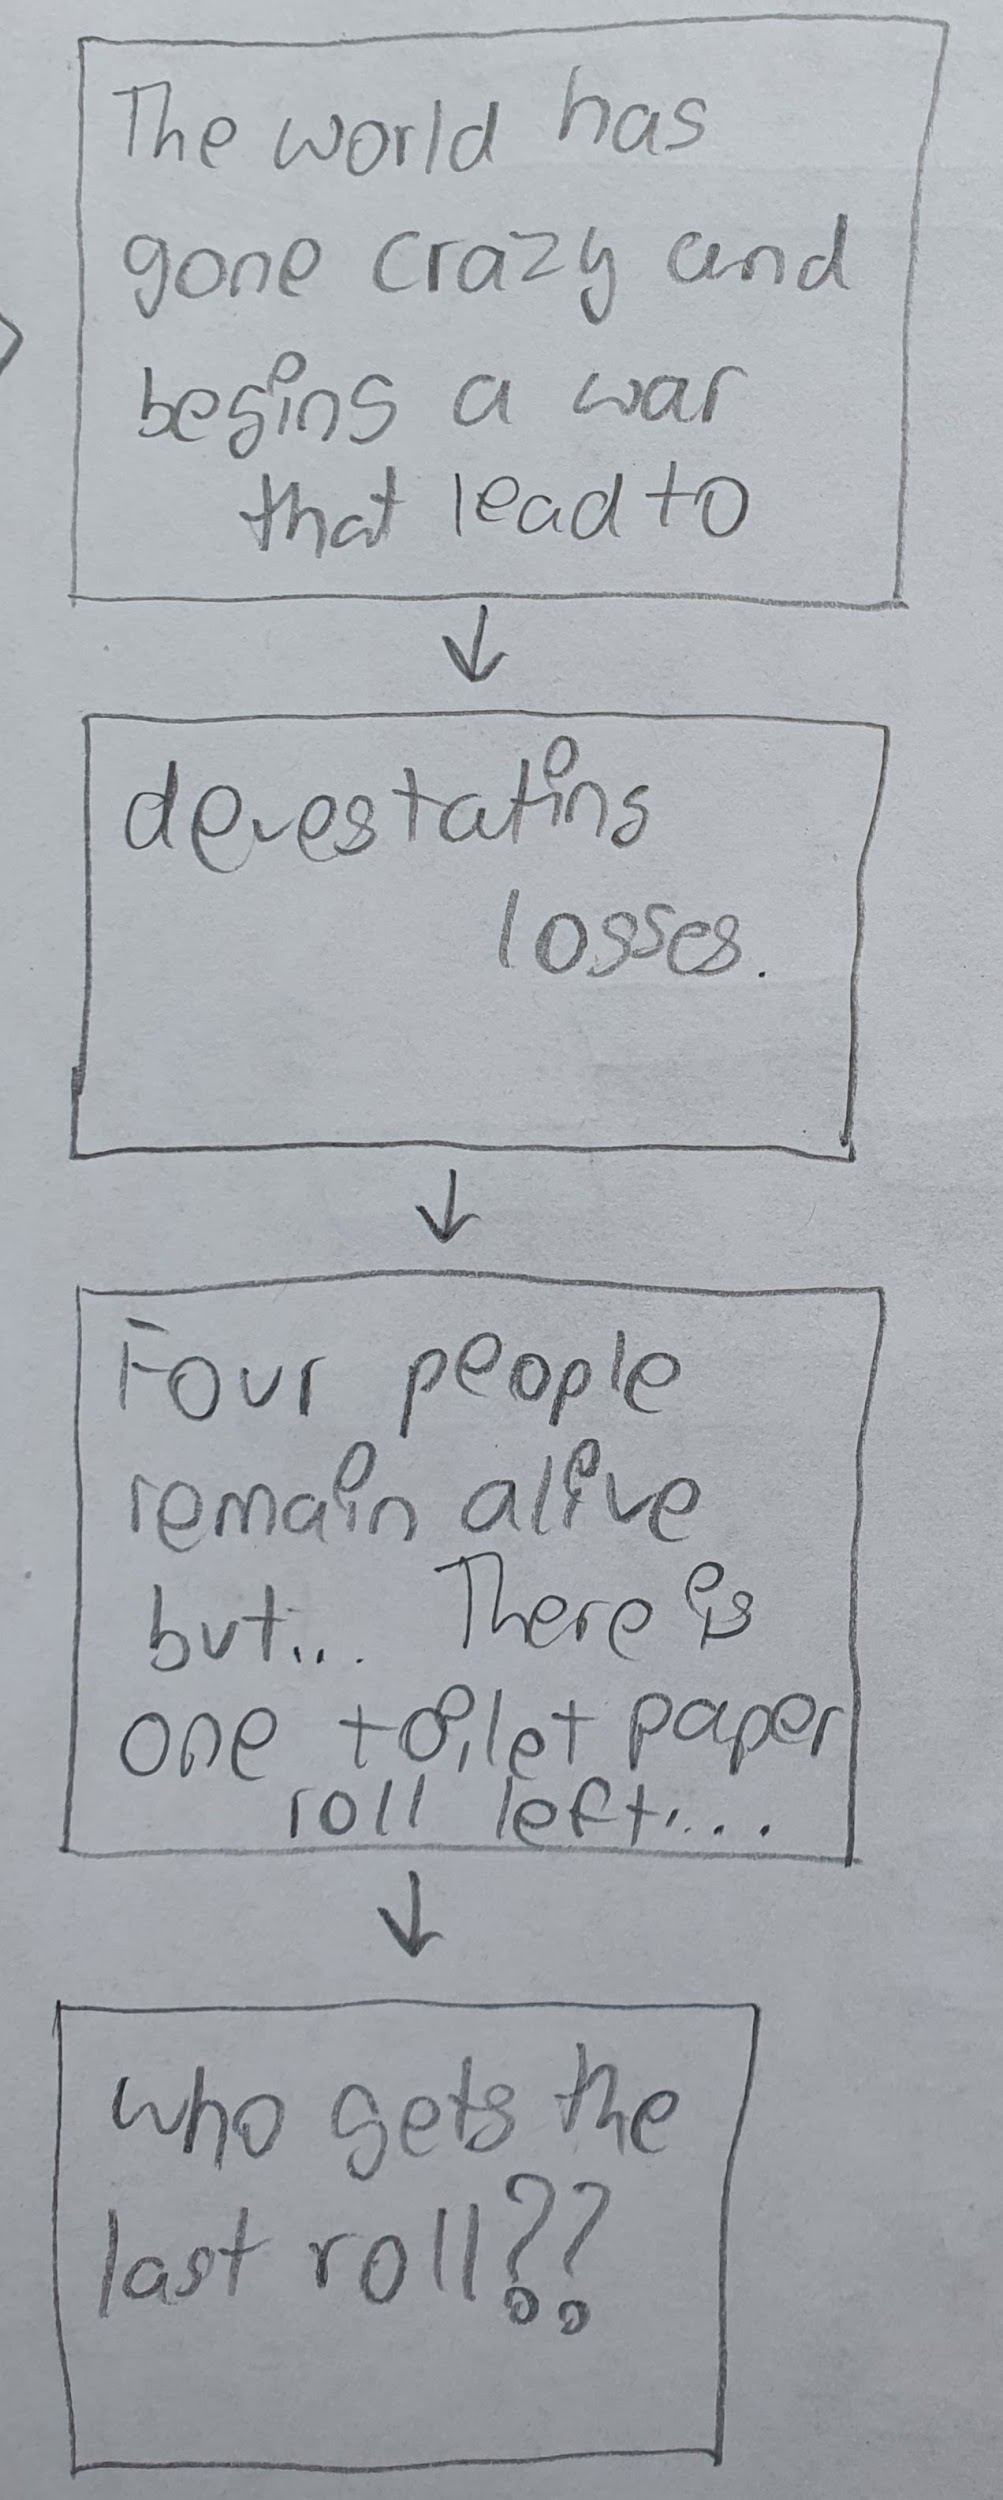 The world has
gone crazy and
begins a war
that lead to
devestating
losses.
Four people
remain alive
but... There is
one toilet paper
roll left....
who gets the
last roll??